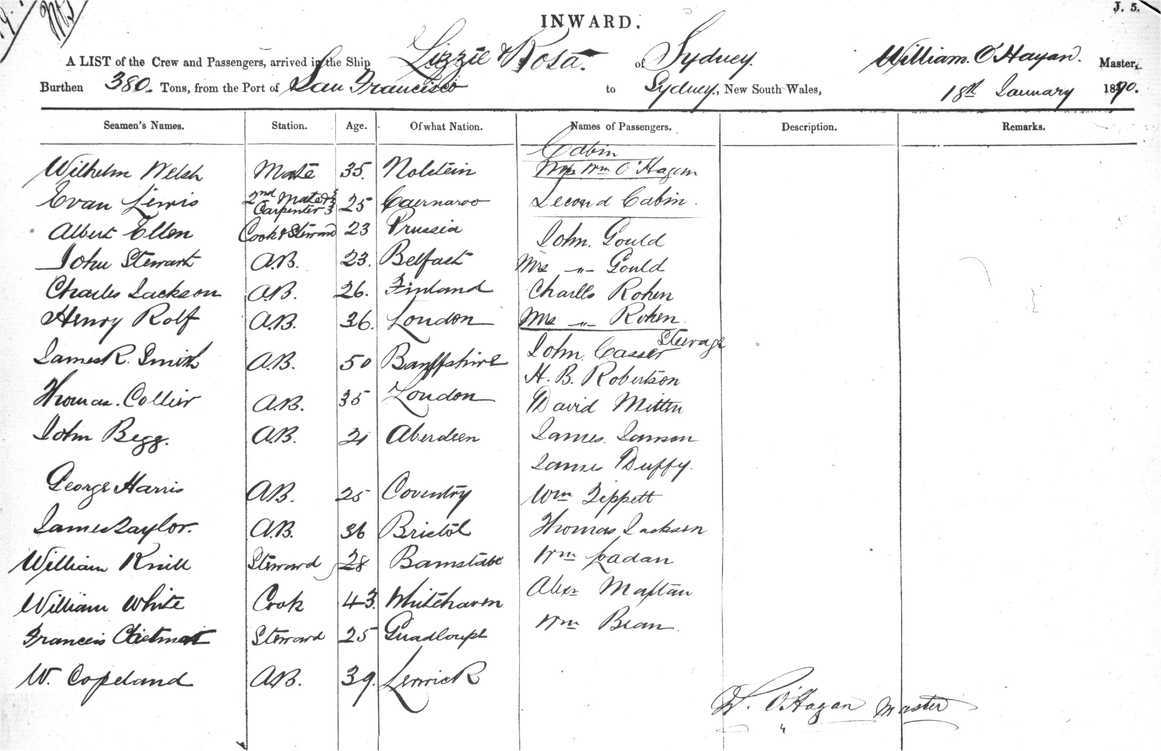 J. 5.
INWARD.
A LIST of the Crew and Passengers, arrived in the Ship Lizzie & Rosa. of Sydney. William O'Hagan. Master,
Burthen 380. Tons, from the Port of San Francisco to Sydney, New South Wales, 18th January 1870.
Seamen's Names. Station. Age. Of what Nation. Names of Passengers. Description. Remarks.
Cabin
Wilhelm Welsh Mate 35. Holstein Mrs Wm O'Hagan
Evan Lewis 2nd Mate & Carpenter 25 Second Cabin.
Albert Ellen Cook & Steward 23 Prussia John. Gould
John Stewart A.B. 23. Belfast Mrs " Gould
Charles Jackson A.B. 26. Finland Charles Rohen
Henry Rolf A.B. 36. London Mrs " Rohen.
Steerage
James R. Smith A.B. 50 Banffshire John Casser
H. B. Robertson
Thomas. Collier A.B. 35 London David Mitten
John Begg. A.B. 21 Aberdeen James
James Duffy.
George Harris A.B. 25 Coventry Wm Tippett
James Taylor. A.B. 36 Bristol Thomas Jackson
William Knill Steward 28 Barnstable Wm Ladan
William White Cook 43. Whitehaven Alexr
Francis Steward 25 Guadloupe Wm Bean
W. Copeland A.B. 39. Lerwick
W. O'Hagan Master